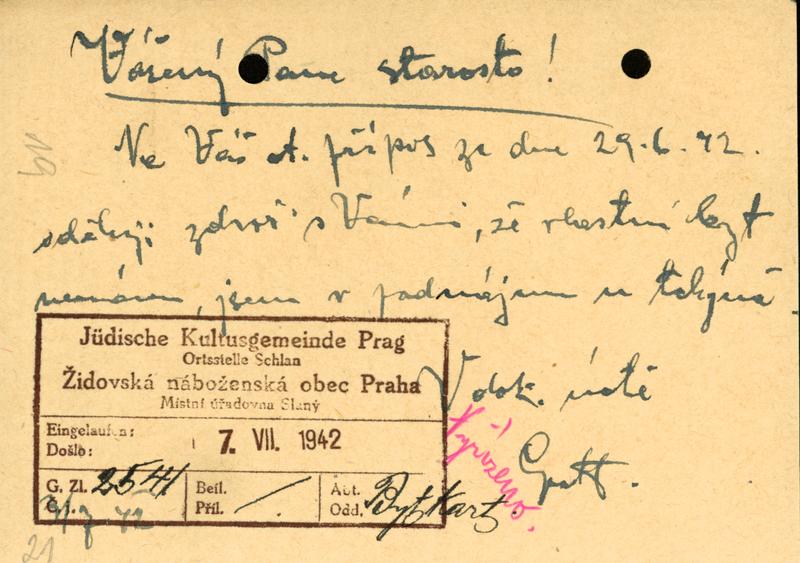 Vážený Pane starosto!
Na Váš d. přípis ze dne 29.6.42.
sděluji zdvoř. s Vámi, že vlastní byt
nemám, jsem v podnájmu u
V dok. úctě
Vyřízeno.
Jüdische Kultusgemeinde Prag
Ortsstelle Schlan
Židovská náboženská obec Praha
Místní úřadovna Slaný
Eingelaufen:
Došlo:
7. VII. 1942
G. Zl. 2541
Č. j.
Beil.
Příl.
Abt.
Odd.
Bytkart.
19
21